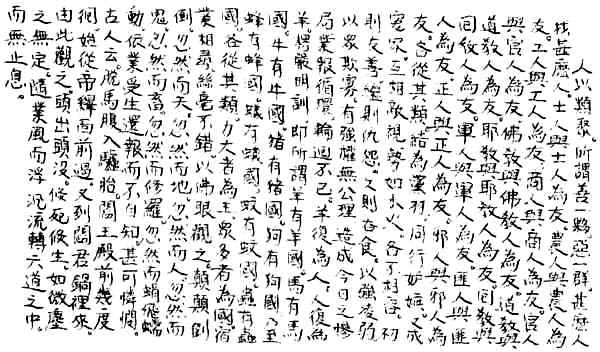 人以類聚。所謂善一夥惡一群。甚麼人
找甚麼人。士人與士人為友。農人與農人為
友。工人與工人為友。商人與商人為友。官人
與官人為友。佛教與佛教人為友。道教與
道教人為友。耶教與耶教人為友。回教與
回教人為友。軍人與軍人為友。匪人與匪
人為友。正人與正人為友。邪人與邪人為
友。各從其類。結為黨羽。同行妒嫉。又成
冤家。互相敵視。勢如水火。各不相容。初
則友善。繼則仇怨。又則吞食。以強凌弱
以眾欺寡。有強權無公理。造成今日之慘
局。業報循環。輪迴不已。羊復為人。人復為
羊。楞嚴明訓。即所謂羊有羊國。馬有馬
國。牛有牛國。猪有猪國。狗有狗國。乃至
蜂有蜂國。蟻有蟻國。蚊有蚊國。蟲有蟲
國。各從其類。力大者為王。眾多者為國。宿
業相尋。絲毫不錯。以佛眼觀之。顛顛倒
倒。忽然而天。忽然而地。忽然而人。忽然而
鬼。忽然而畜。忽然而修羅。忽然而蜎飛蠕
動。依業受生。還報而不自知。甚可憐憫。
古人云。脫馬腹入驢胎。閻王殿前幾度
徊。始從帝釋面前過。又到閻君鍋裡來。
由此觀之。頭出頭沒。倏死倏生。如微塵
之無定。隨業風而浮沉。流轉六道之中。
而無止息。